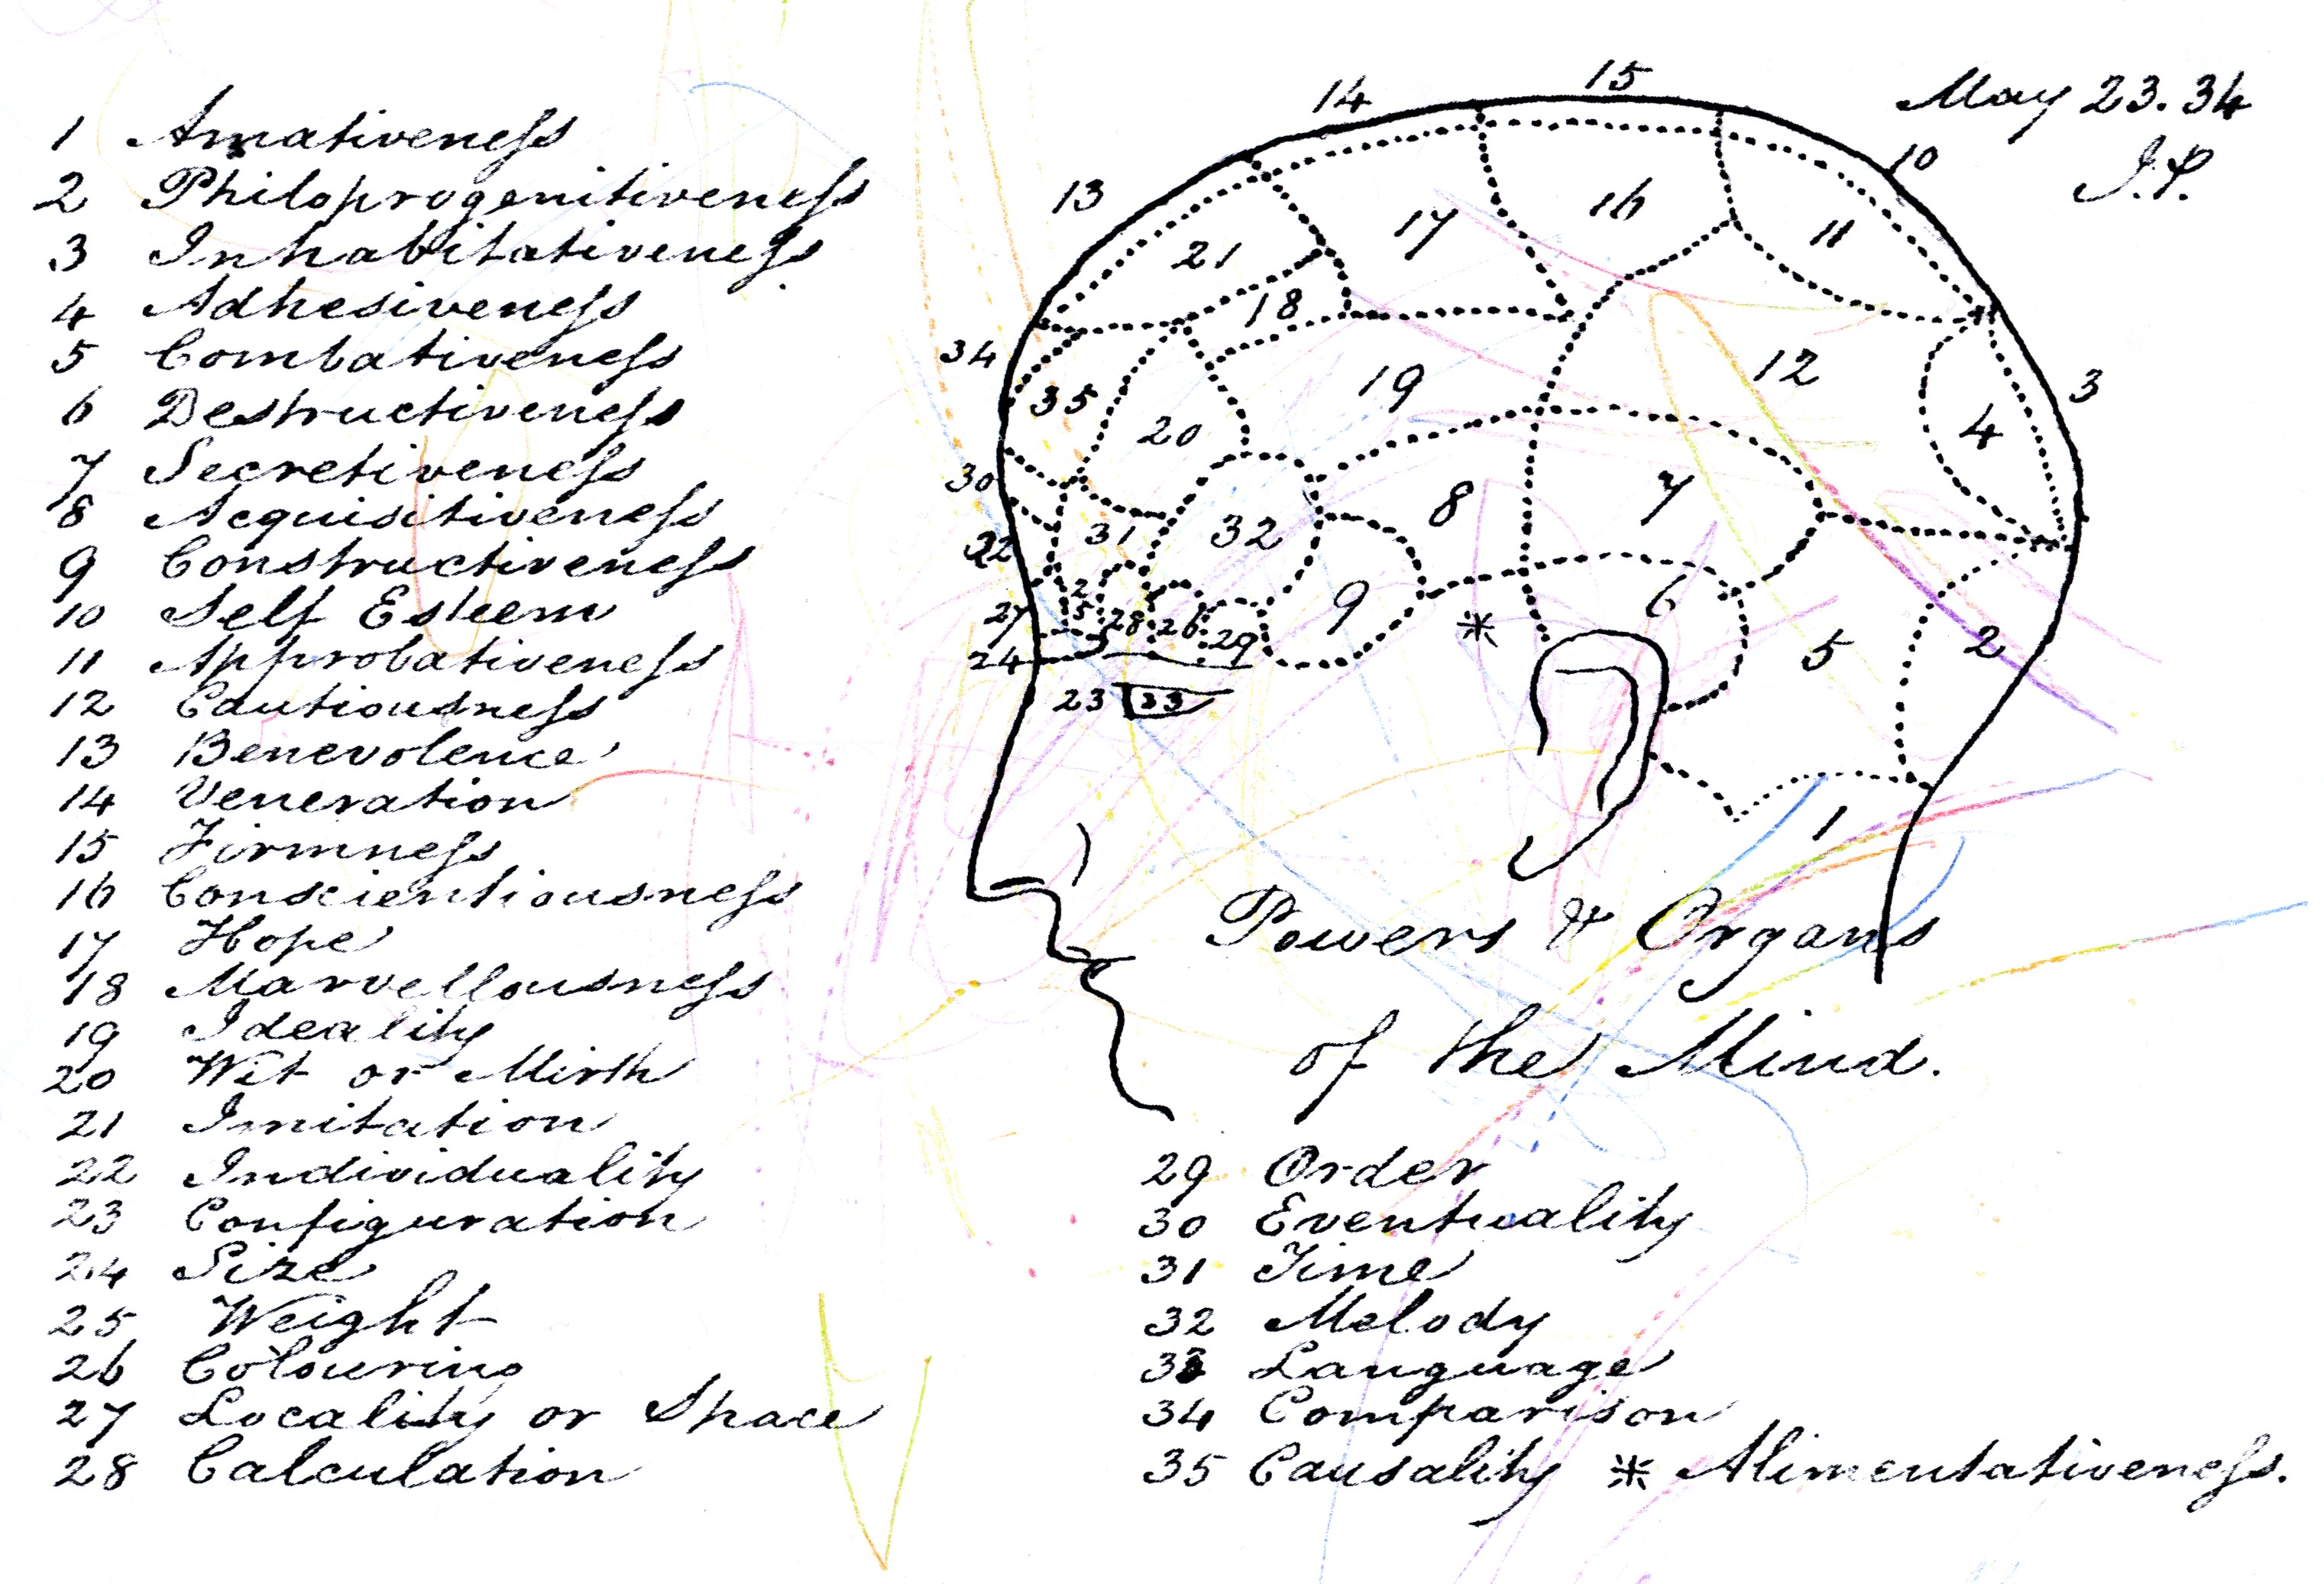 May 23. 34
J.S.
1 Amativeness
2 Philoprogenitiveness
3 Inhabitativeness.
4 Adhesiveness
5 Combativeness
6 Destructiveness
7 Secretiveness
8 Acquisitiveness
9 Constructiveness
10 Self Esteem
11 Approbativeness
12 Cautiousness
13 Benevolence
14 Veneration
15 Firmness
16 Conscientiousness
17 Hope
18 Marvellousness
19 Ideality
20 Wit or Mirth
21 Imitation
22 Individuality
23 Configuration
24 Size
25 Weight
26 Colouring
27 Locality or Space
28 Calculation
14 15
13 10
21 17 16 11
18
34 35 20 19 12 3
4
30 31 32 8 7
22
27 25 28 26 29 9 * 6 5 2
24
23 33
1
Powers & Organs
of the Mind.
29 Order
30 Eventuality
31 Time
32 Melody
33 Language
34 Comparison
35 Causality * Alimentativeness.